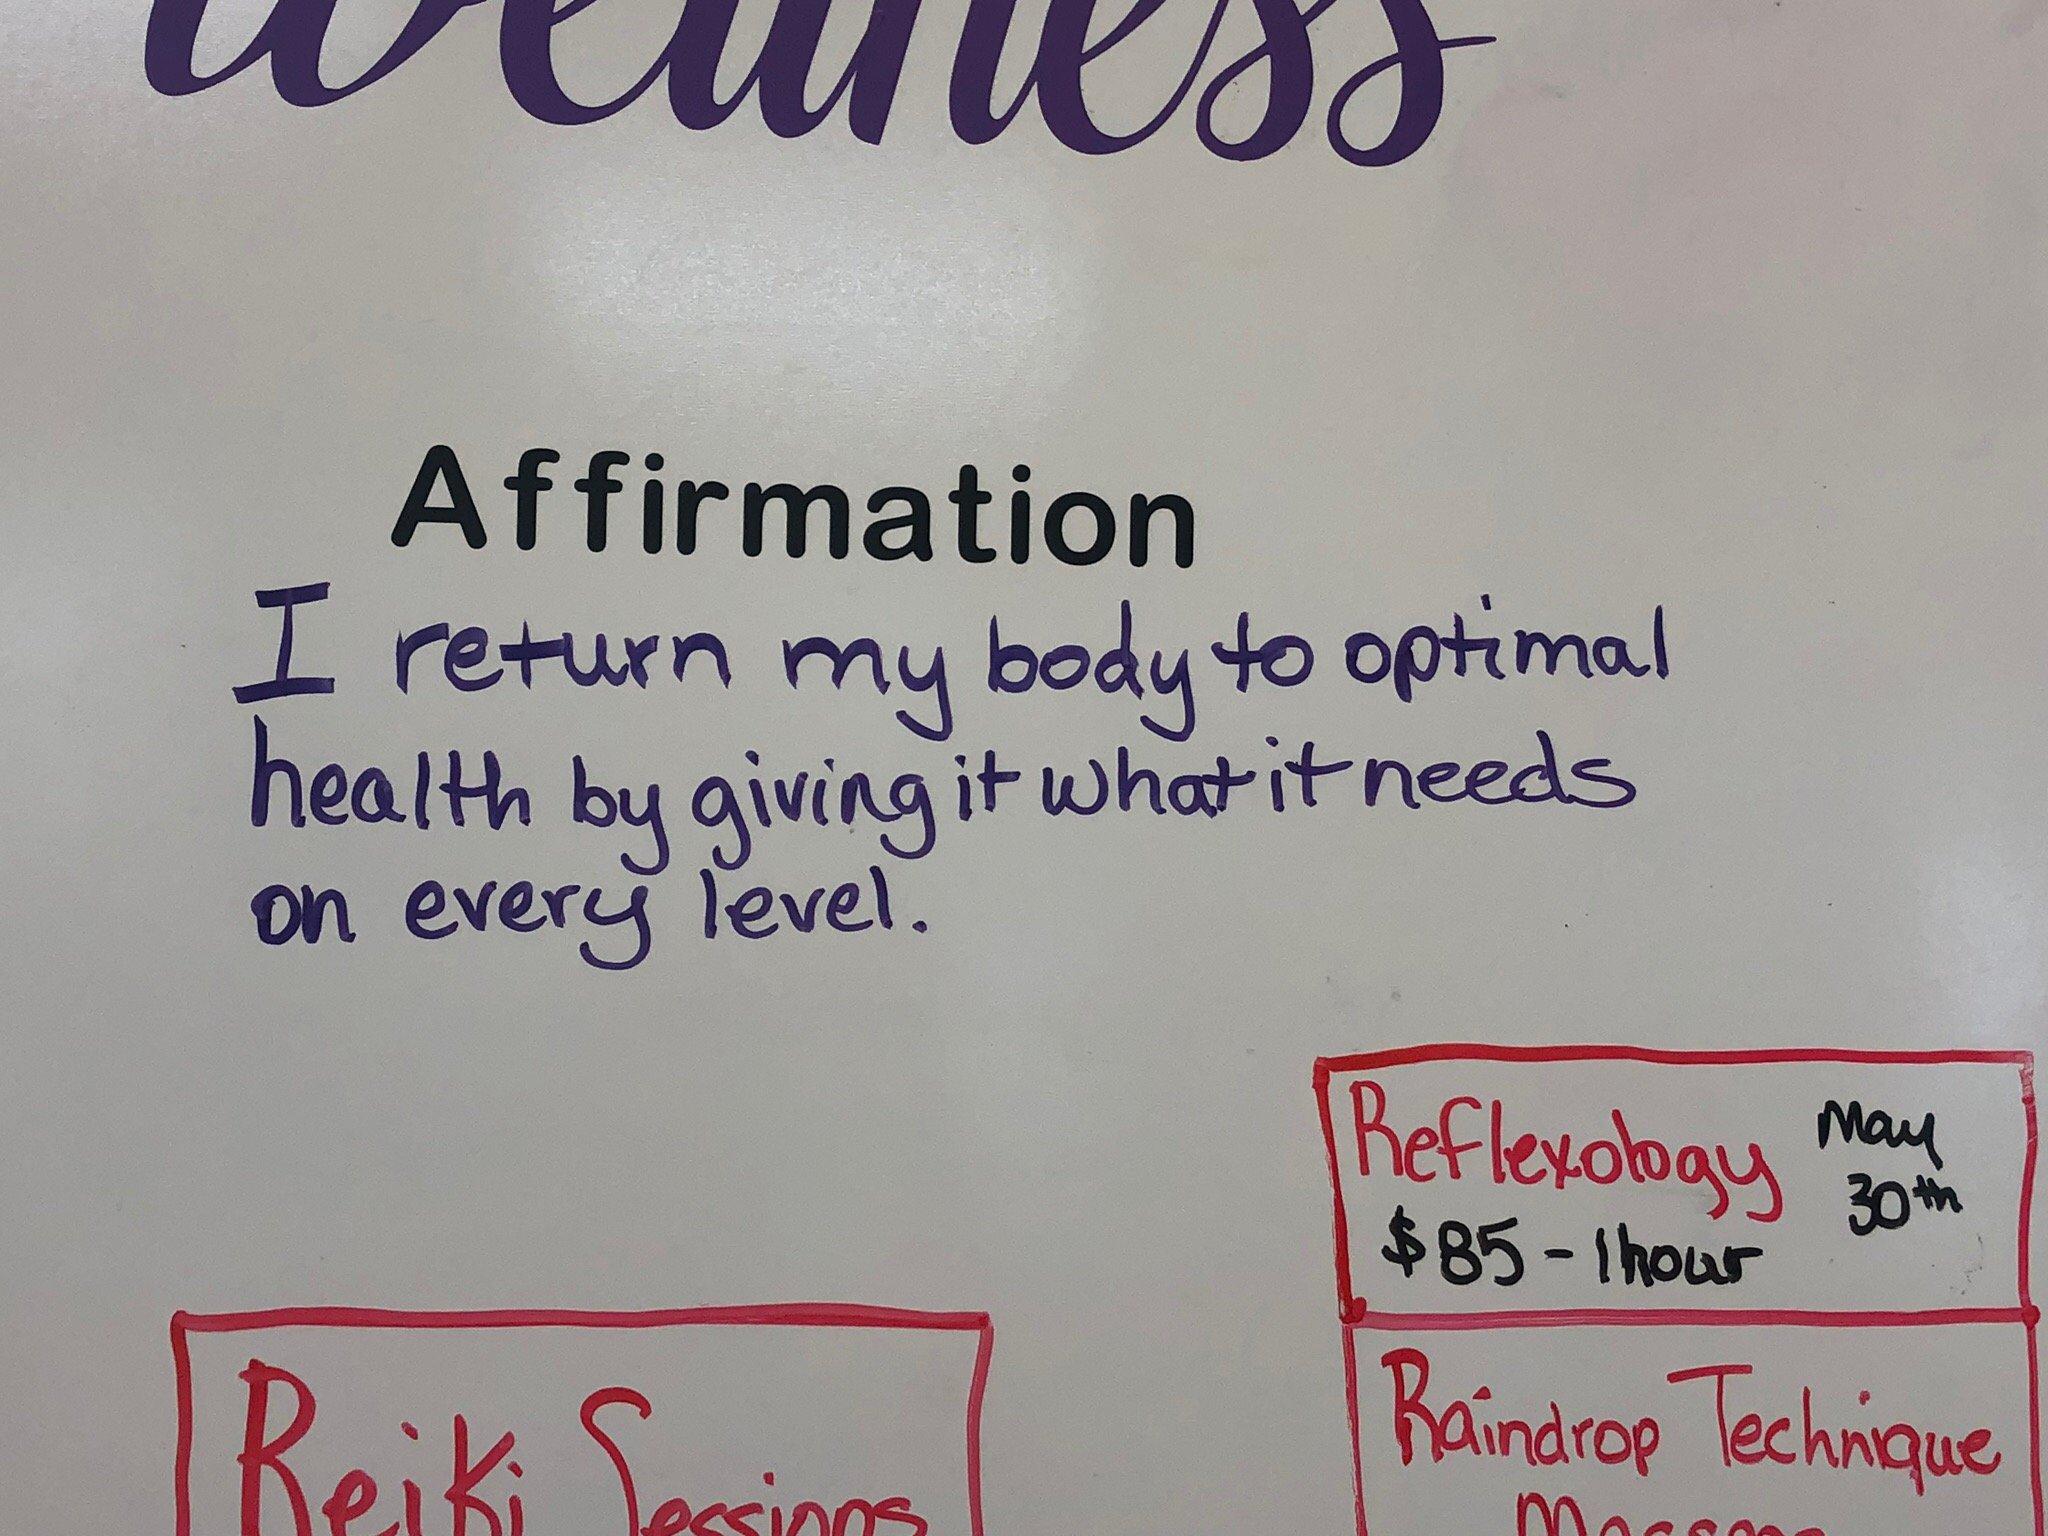 Wellness
Affirmation
I return my body to optimal
health by giving it what it needs
on every level.
Reflexology May
30th
$85 - 1 hour
Raindrop Technique
Massage
Reiki Sessions